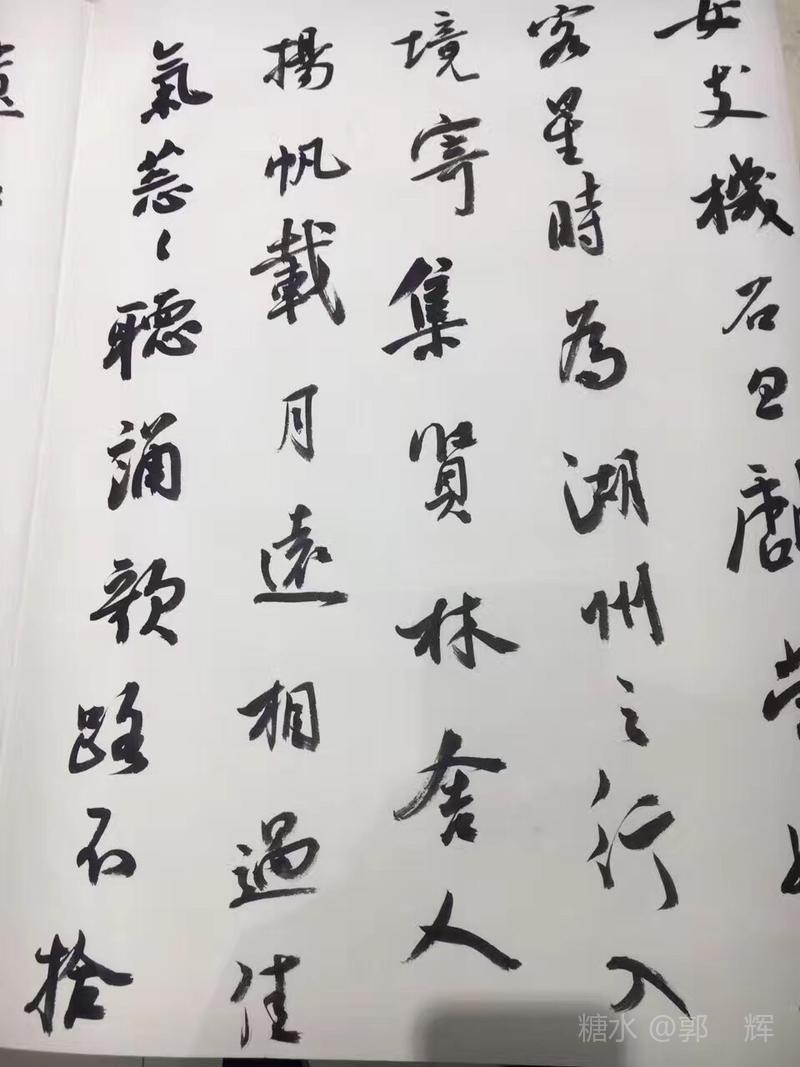 女支機石且戲
客星時為湖州之行入
境寄集賢林舍人
揚帆載月遠相過佳
氣葱〻聽誦歌路不拾
糖水 @郭 辉